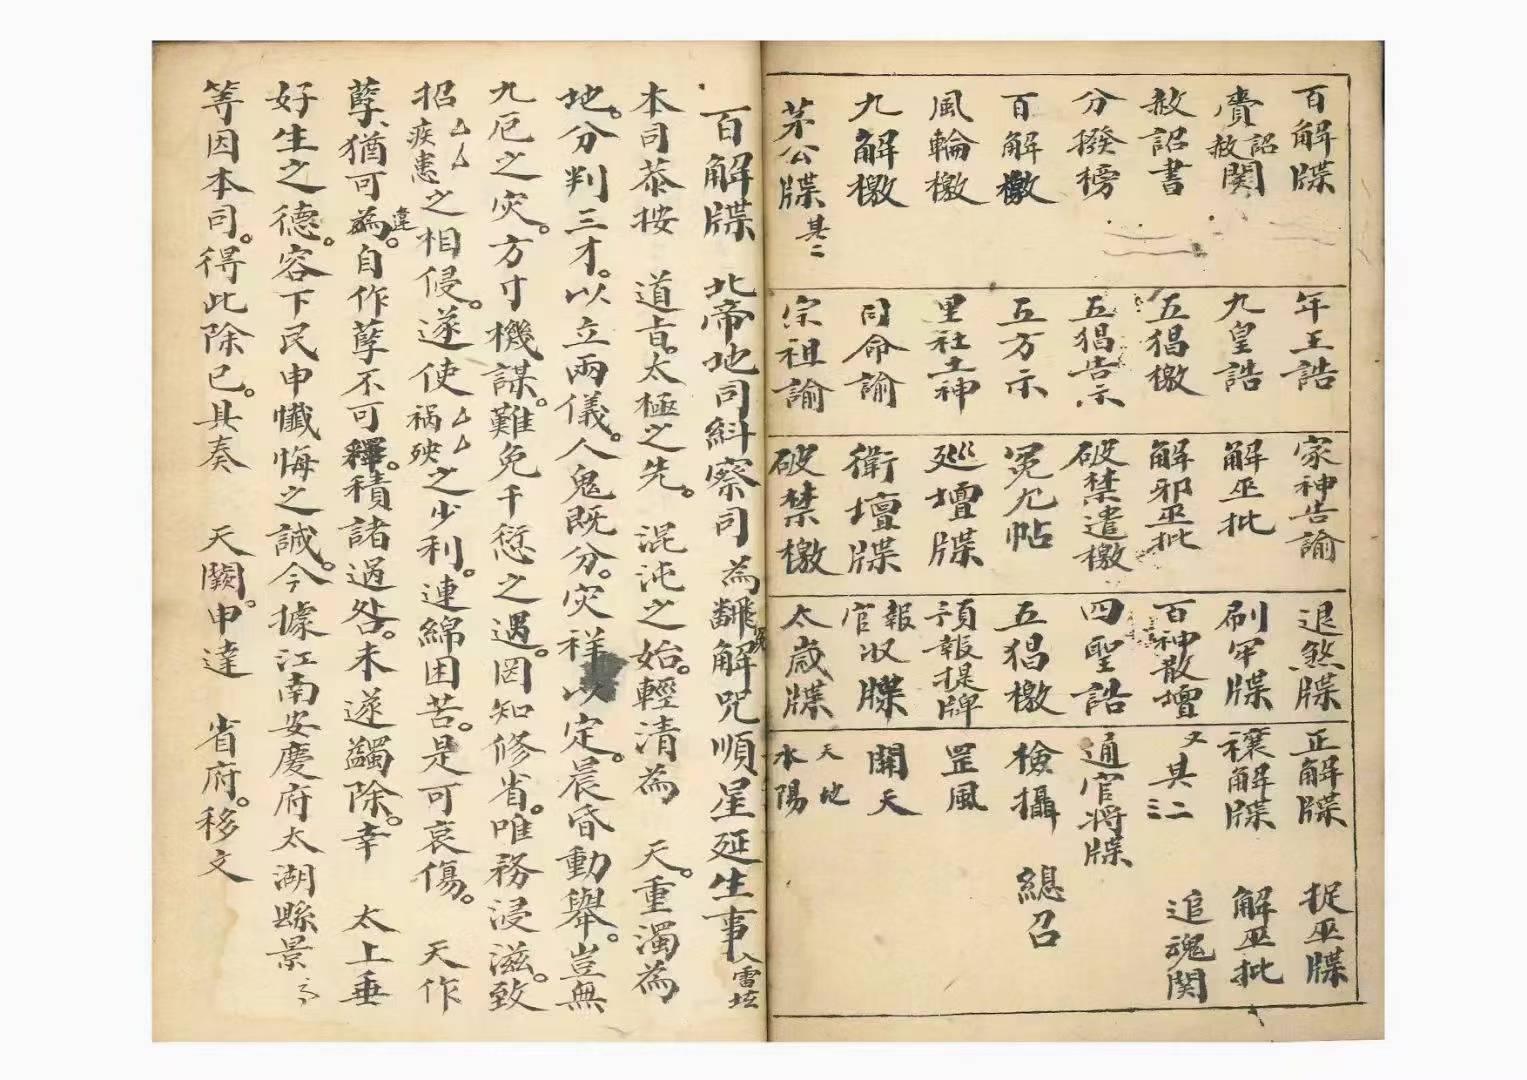 百解牒
賫詔赦関
赦詔書
分撥榜
百解檄
風輪檄
九解檄
茅公牒其二
年王誥
九皇誥
五猖檄
五猖告示
五方示
里社土神
司命諭
宗祖諭
家神告諭
解巫批
解邪巫批
破禁遣檄
冤九帖
廵壇牒
衛壇牒
破禁檄
退煞牒
刷牢牒
百神散壇
四聖誥
五猖檄
預報提牌
報收牒官
太歲牒
正解牒
禳解牒
又其二三
通官将牒
檢攝
罡風
開天
天地水陽
捉巫牒
解巫批
追魂関
總召
百解牒　北帝地司糾察司　為飜解咒順星延生事入雷坛
本司恭按　道旨。太極之先。混沌之始。輕清為　天。重濁為
地。分判三才。以立兩儀。人鬼既分。灾祥以定。晨昏動舉。豈無
九厄之灾。方寸機謀。難免千愆之遇。罔知修省。唯務浸滋。致
招疾患厶厶之相侵。遂使禍殃厶厶之少利。連綿困苦。是可哀傷。　天作
孽、猶可為違。自作孽不可釋。積諸過咎。未遂蠲除。幸　太上垂
好生之德。容下民申懺悔之誠。今據江南安慶府太湖縣景
等因本司。得此除已。具奏　天闕。申達　省府。移文